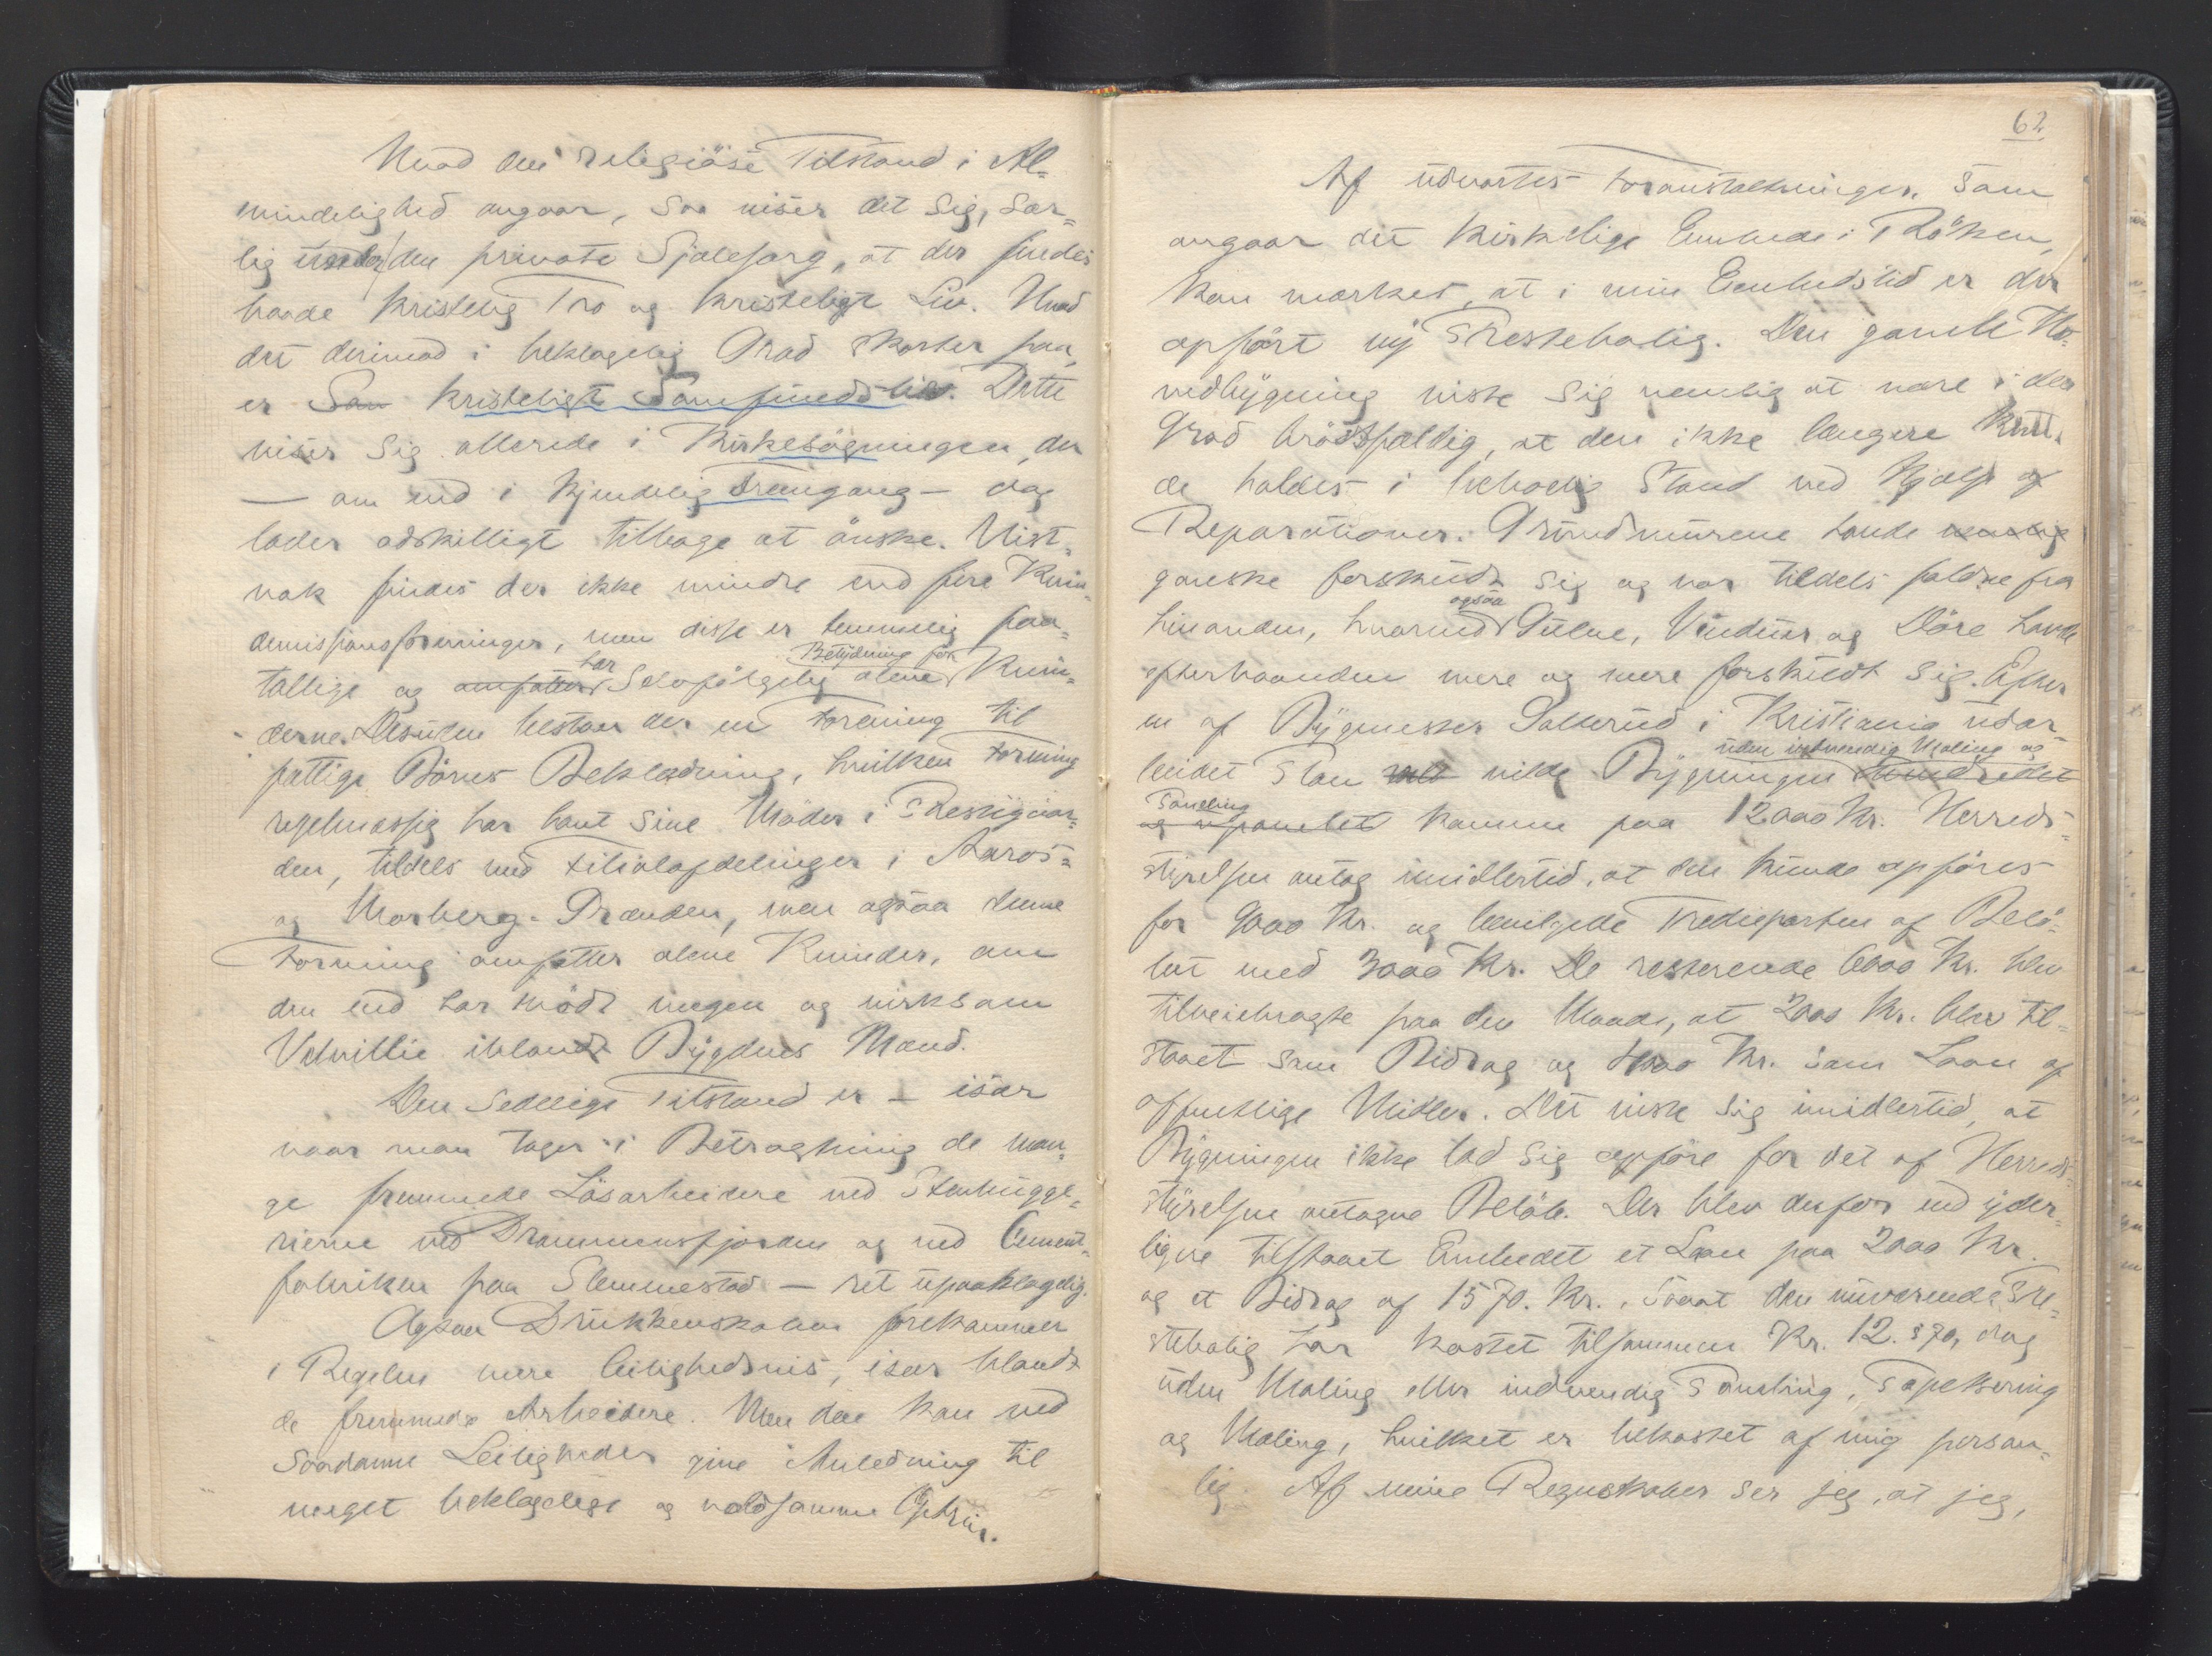 Hvad den religiöse Tilstand i Al-
mindelighed angaar, saa viser det sig, sær-
lig under den private Sjælesorg, at der findes
baade kristelig Tro og kristeligt Liv. Hvad
det derimod i beklagelig Grad skorter paa,
er Sam kristeligt Samfundsliv. Dette
viser sig allerede i Kirkesögningen, der
— om end i kjendelig Fremgang — dog
lader adskilligt tilbage at önske. Vist-
nok findes der ikke mindre end fire Kvin-
demissionsforeninger, men disse er temmelig faa-
har Betydning for
tallige og omfatter selvfölgelig alene Kvin-
derne. Desuden bestaar der en Forening til
fattige Börns Beklædning, hvilken Forening
regelmæssig har havt sine Möder i Præstegaar-
den, tildels med Filialafdelinger i Aaros-
og Morberg-Grænden, men ogsaa denne
Forening omfatter alene Kvinder, om
den end har mödt megen og virksom
Velvillie iblandt Bygdens Mænd.
Den sedelige Tilstand er — især
naar man tager i Betragtning de man-
ge fremmede Lösarbeidere ved Stenhugge-
rierne ved Drammensfjorden og ved Cement-
fabriken paa Slemmestad — ret upaaklagelig.
Ogsaa Drukkenskaben forekommer
i Regelen mere leilighedsvis, især blandt
de fremmede Arbeidere. Men den kan ved
saadanne Leiligheder give Anledning til
meget beklagelige og voldsomme Optrin.
62
Af udvortes Foranstaltninger, som
angaar det kirkelige Embede i Röken,
kan mærkes, at i min Embedstid er der
opfört ny Prestebolig. Den gamle Ho-
vedbygning viste sig nemlig at være i den
Grad bröstfældig, at den ikke længere kun-
de holdes i beboelig Stand ved Hjælp af
Reparationer. Grundmurene havde nemlig
ganske forskudt sig og var tildels faldne fra
ogsaa
hinanden, hvorved Gulve, Vinduer og Döre havde
efterhaanden mere og mere forskudt sig. Efter
en af Bygmester Sallerud i Kristiania udar-
uden udvendig Maling og
beidet Plan vilde Bygningen
Paneling
og upanelet komme paa 12000 Kr. Herreds-
styrelsen antog imidlertid, at den kunde opföres
for 9000 Kr. og bevilgede Trediéparten af Belö-
bet med 3000 Kr. De resterende 6000 Kr. blev
tilveiebragte paa den Maade, at 2000 Kr. blev til-
staaet som Bidrag og 4000 Kr. som Laan af
offentlige Midler. Det viste sig imidlertid, at
Bygningen ikke lod sig opföre for det af Herreds-
styrelsen antagne Belöb. Der blev derfor end yder-
ligere tilstaaet Embedet et Laan paa 2000 Kr.
og et Bidrag af 1570. Kr., saaat den nuværende Pre-
stebolig har kostet tilsammen Kr. 12.570, dog
uden Maling eller indvendig Paneling, Tapetsering
og Maling, hvilket er bekostet af mig person-
lig. Af mine Regnskaber ser jeg, at jeg,